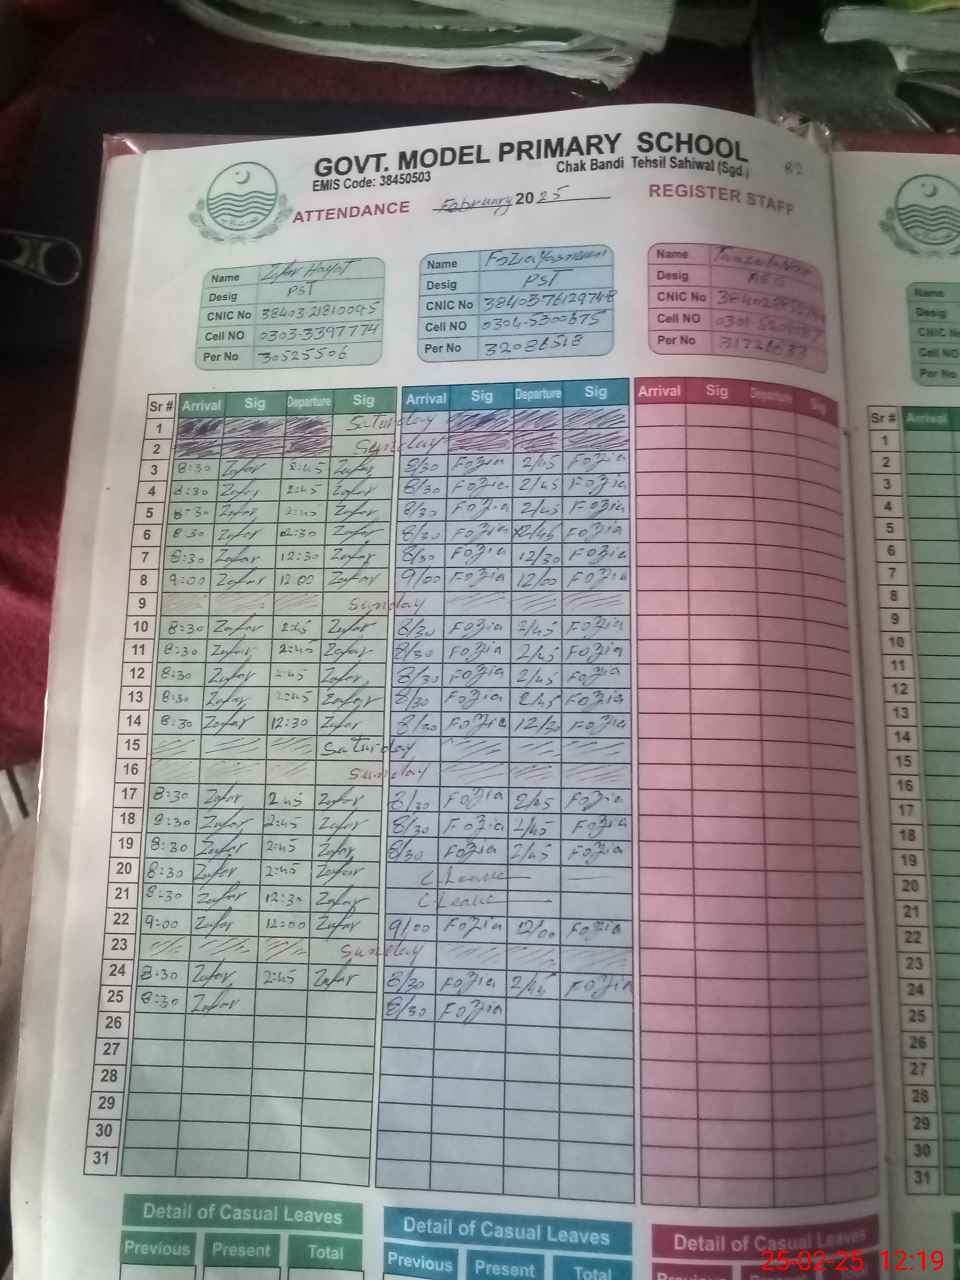 GOVT. MODEL PRIMARY SCHOOL
EMIS Code: 38450503
Chak Bandi Tehsil Sahiwal (Sgd.)
82
ATTENDANCE February 2025 REGISTER STAFF
Name Zafar Hayat
Desig PST
CNIC No 38403-2181009-5
Cell NO 0303-3397774
Per No 30525506
Name Fozia Yasmeen
Desig PST
CNIC No 38403-7612974-8
Cell No 0304-5300675
Per No 32086518
Name
Desig
CNIC No
Cell No
Per No
Name
Desig
CNIC No
Cell NO
Per No
Sr # Arrival Sig Departure Sig Arrival Sig Departure Sig Arrival Sig Departure Sig
1 Saturday
2 Sunday
3 8:30 Zafar 2:45 Zafar 8/30 Fozia 2/45 Fozia
4 8:30 Zafar 2:45 Zafar 8/30 Fozia 2/45 Fozia
5 8:30 Zafar 2:45 Zafar 8/30 Fozia 2/45 Fozia
6 8:30 Zafar Zafar 8/30 Fozia 2/45 Fozia
7 8:30 Zafar 12:30 Zafar 8/30 Fozia 12/30 Fozia
8 9:00 Zafar 12:00 Zafar 9/00 Fozia 12/00 Fozia
9 Sunday
10 8:30 Zafar 2:45 Zafar 8/30 Fozia 2/45 Fozia
11 8:30 Zafar 2:45 Zafar 8/30 Fozia 2/45 Fozia
12 8:30 Zafar 2:45 Zafar 8/30 Fozia 2/45 Fozia
13 8:30 Zafar 2:45 Zafar 8/30 Fozia 2/45 Fozia
14 8:30 Zafar 12:30 Zafar 8/30 Fozia 12/30 Fozia
15 Saturday
16 Sunday
17 8:30 Zafar 2:45 Zafar 8/30 Fozia 2/45 Fozia
18 8:30 Zafar 2:45 Zafar 8/30 Fozia 2/45 Fozia
19 8:30 Zafar 2:45 Zafar 8/30 Fozia 2/45 Fozia
20 8:30 Zafar 2:45 Zafar C.Leave
21 8:30 Zafar 12:30 Zafar C Leave
22 9:00 Zafar 12:00 Zafar 9/00 Fozia 12/00 Fozia
23 Sunday
24 8:30 Zafar 2:45 Zafar 8/30 Fozia 2/45 Fozia
25 8:30 Zafar 8/30 Fozia
26
27
28
29
30
31
Detail of Casual Leaves Detail of Casual Leaves Detail of Casual Leaves
Previous Present Total Previous Present Total Previous Present Total
Sr # Arrival
1
2
3
4
5
6
7
8
9
10
11
12
13
14
15
16
17
18
19
20
21
22
23
24
25
26
27
28
29
30
31
25-02-25 12:19